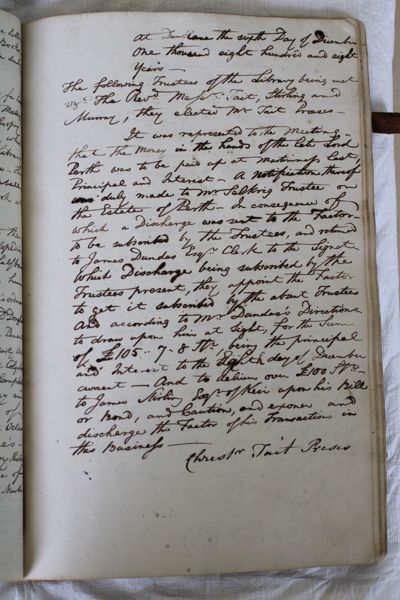 At Dunblane the sixth Day of December
One thousand eight hundred and eight
Years —
The following Trustees of the Library being met
vizt. The Revd. Messrs. Tait, Stirling and
Murray, they elected Mr Tait Preses —
It was represented to the Meeting,
that the Money in the hands of the late Lord
Perth was to be paid up at Martinmas last
Principal and Interest — A notification thereof
was duly made to Mr Selkrig Trustee on
the Estate of Perth — In consequence of
which a Discharge was sent to the Factor
to be subscribed by the Trustees, and returned
to James Dundas Esqr. Clerk to the Signet —
Which Discharge being subscribed by the
Trustees present, they appoint the Factor
to get it subscribed by the absent Trustees
And according to Mr Dundas's Directions
to draw upon him at sight, for the Sum
of £105 .. 7 .. 8 Stg. being the principal
and Interest to the Eighth day of December
current — And to deliver over £100 Stg.
to James Stirling Esqr. of Keir upon his Bill
or Bond, and Caution, and exoner and
discharge the Factor of his transactions in
this Business —
Christr. Tait Preses